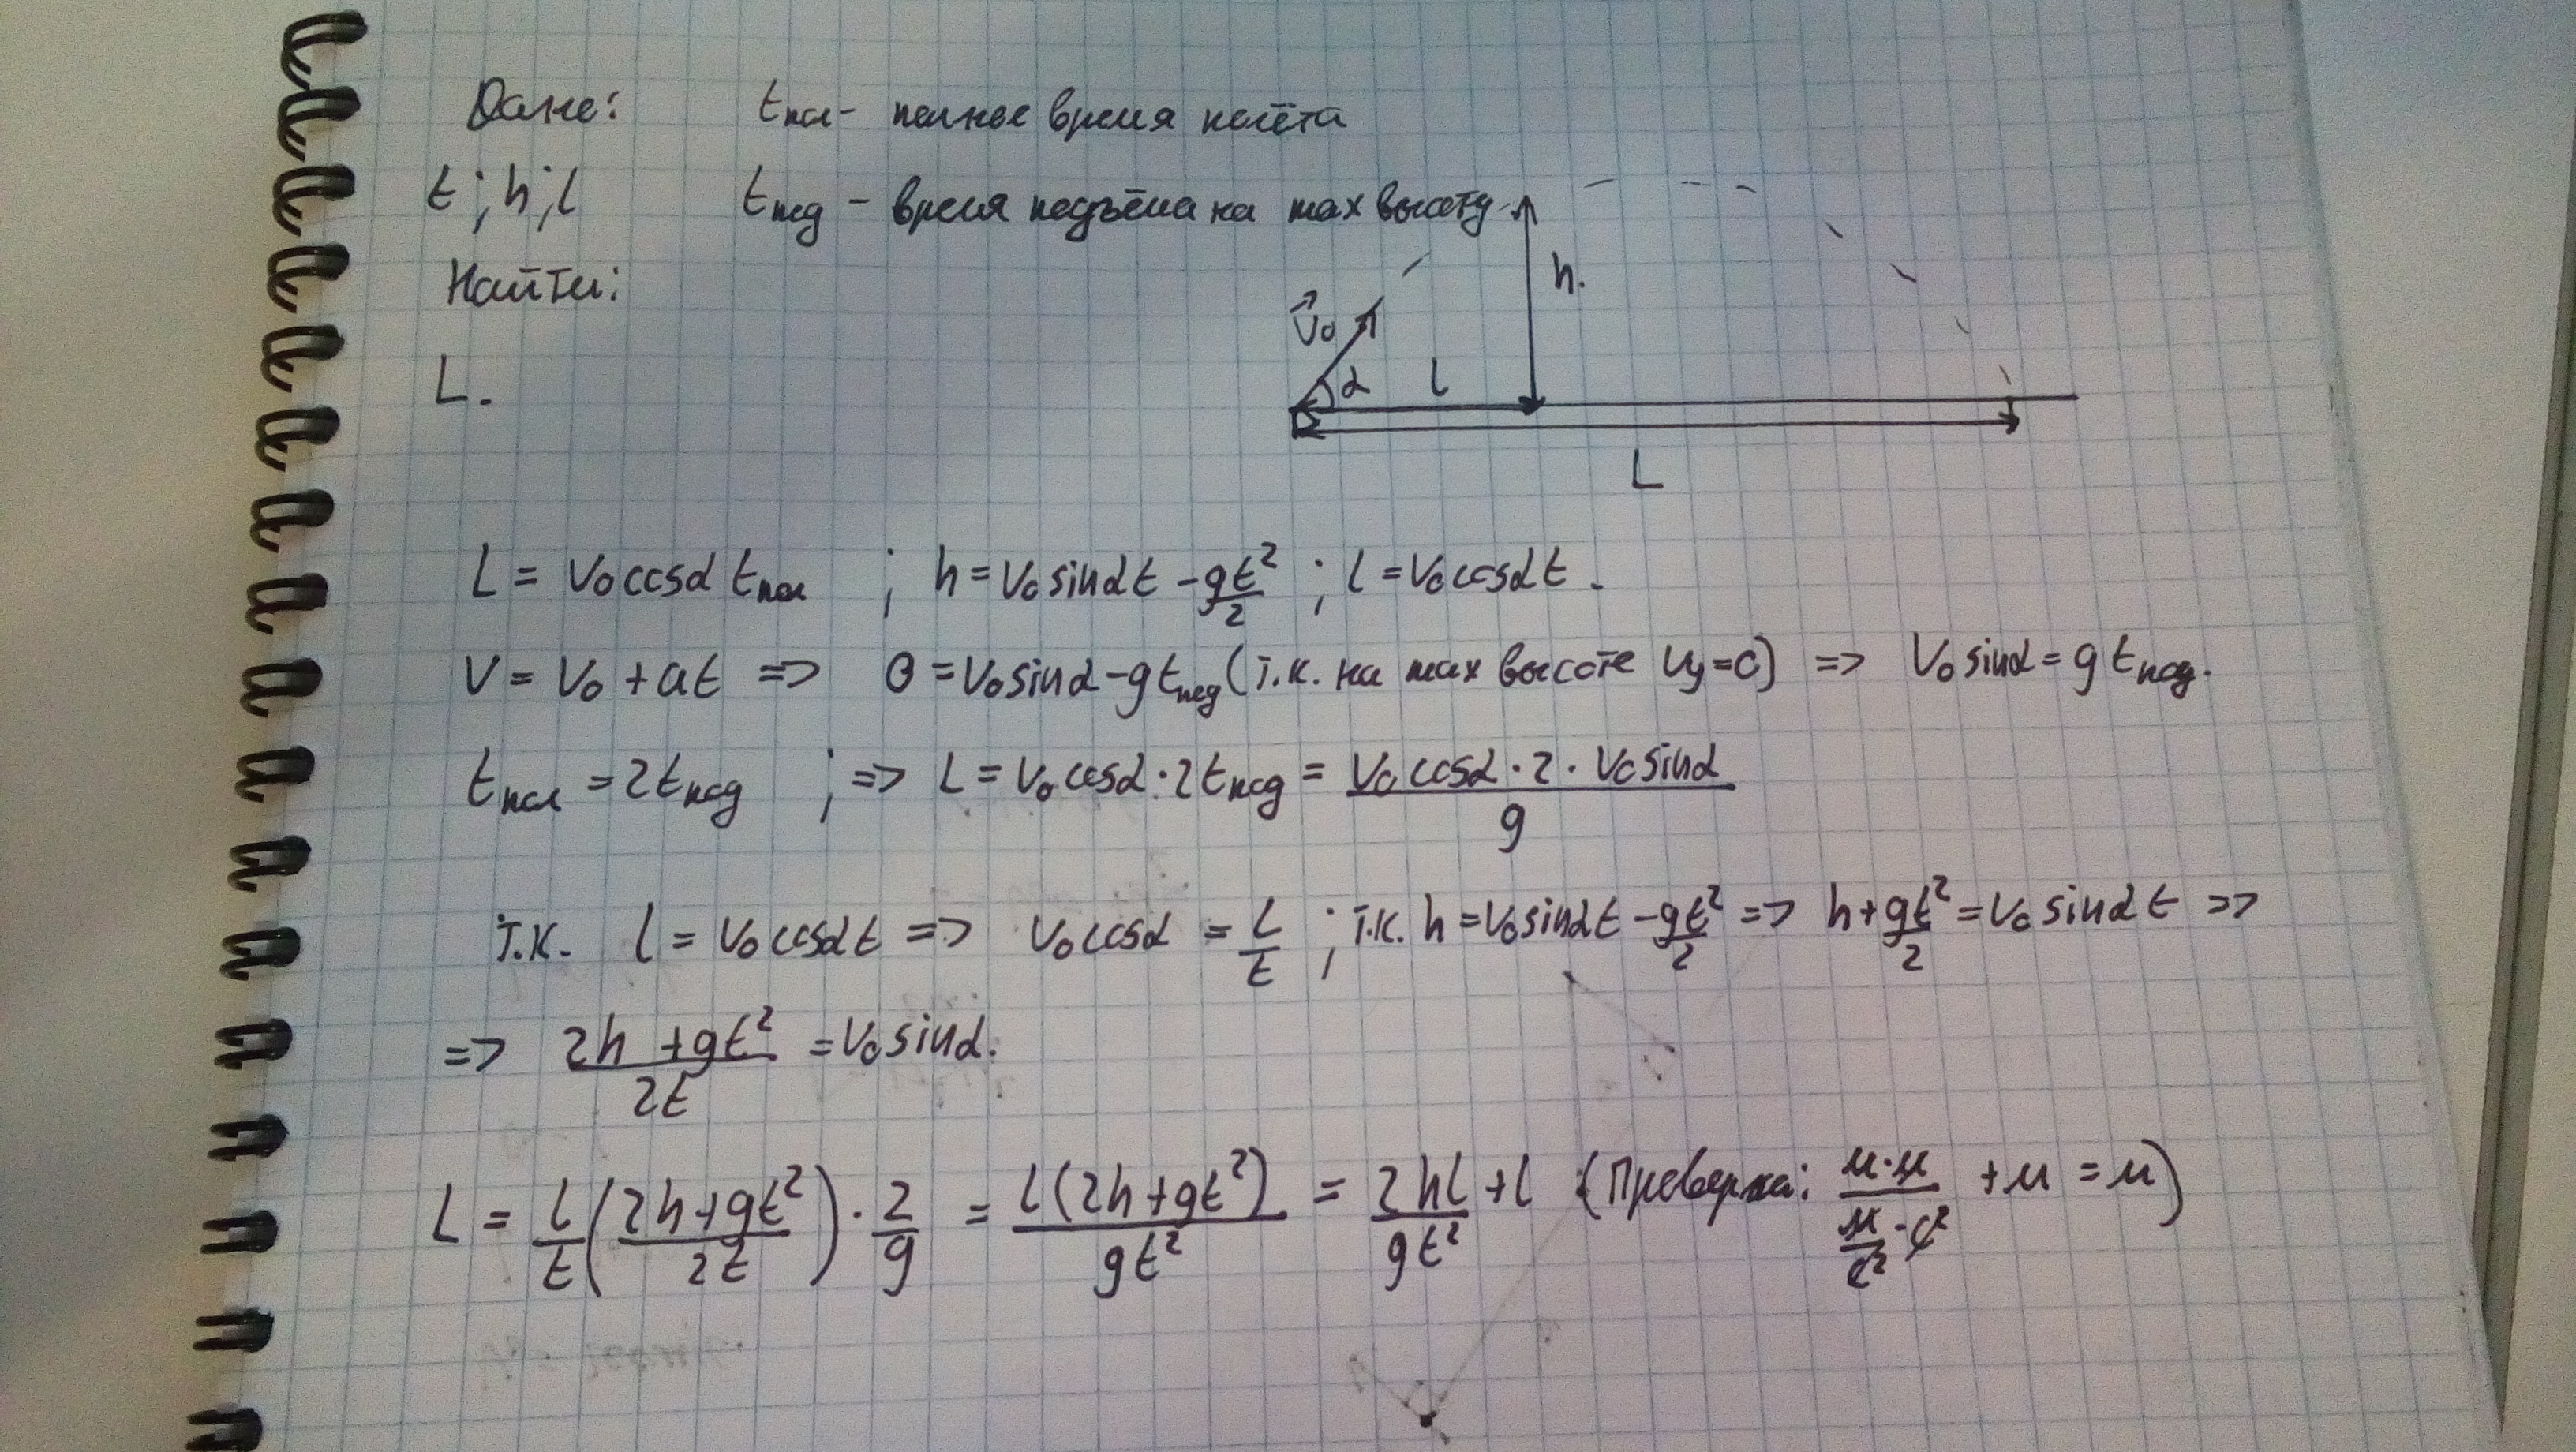 Дано: tпол - полное время полёта
t; h; l tпод - время подъёма на max высоту
Найти:
L.
h.
V⃗₀
α l
L
L = V₀cosα tпол ; h = V₀sinαt - gt²/2 ; l = V₀cosαt.
V = V₀ + at => 0 = V₀sinα - gtпод (т.к. на max высоте Vy=0) => V₀sinα = gtпод.
tпол = 2tпод ; => L = V₀cosα·2tпод = V₀cosα·2·V₀sinα/g
т.к. l = V₀cosαt => V₀cosα = l/t ; т.к. h = V₀sinαt - gt²/2 => h + gt²/2 = V₀sinαt =>
=> (2h + gt²)/2t = V₀sinα.
L = l/t((2h+gt²)/2t)·2/g = l(2h+gt²)/gt² = 2hl/gt² + l (Проверка: м·м/(м/с²·с²) + м = м)